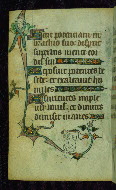 Fecit potentiam in
brachio suo: dispersit
superbos mente cor
dis sui
Deposuit potentes de
sede: et exaltavit hu
miles
Esurientes imple
vit bonis: et divites
dimisit inanes